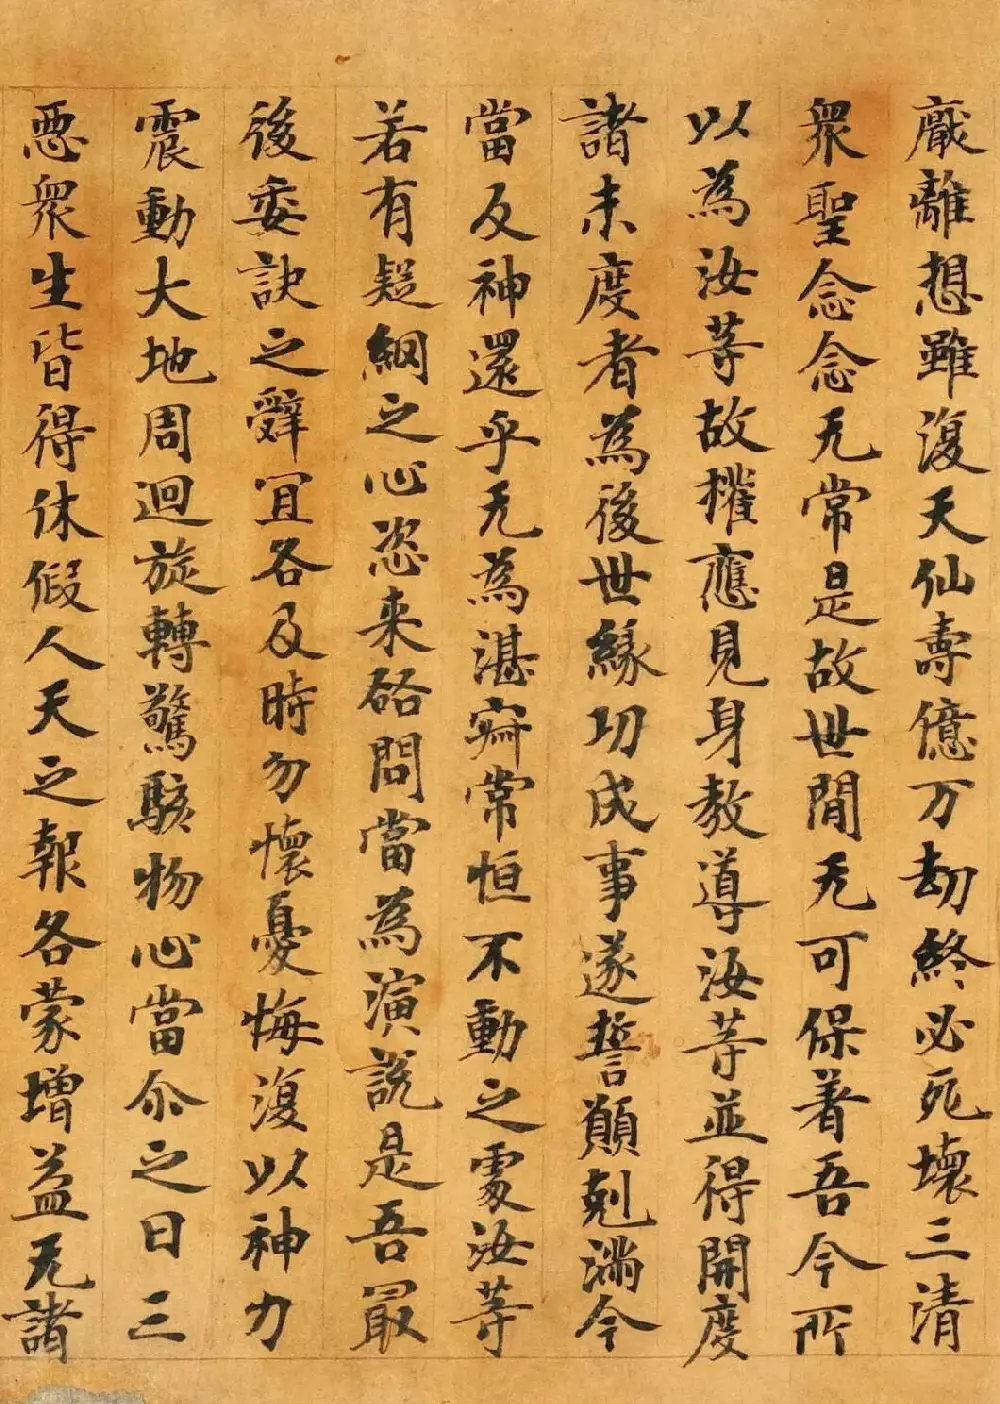 厭離想雖復天仙壽億万劫終必死壞三清
衆聖念念无常是故世間无可保著吾今所
以為汝等故權應見身教導汝等並得開度
諸未度者為後世緣功成事遂誓願剋滿今
當反神還乎无為湛寂常恒不動之處汝等
若有疑網之心恣来諮問當為演說是吾最
後委訣之辝宜各及時勿懷憂悔復以神力
震動大地周迴旋轉驚駭物心當尒之日三
惡衆生皆得休假人天之報各蒙增益无諸